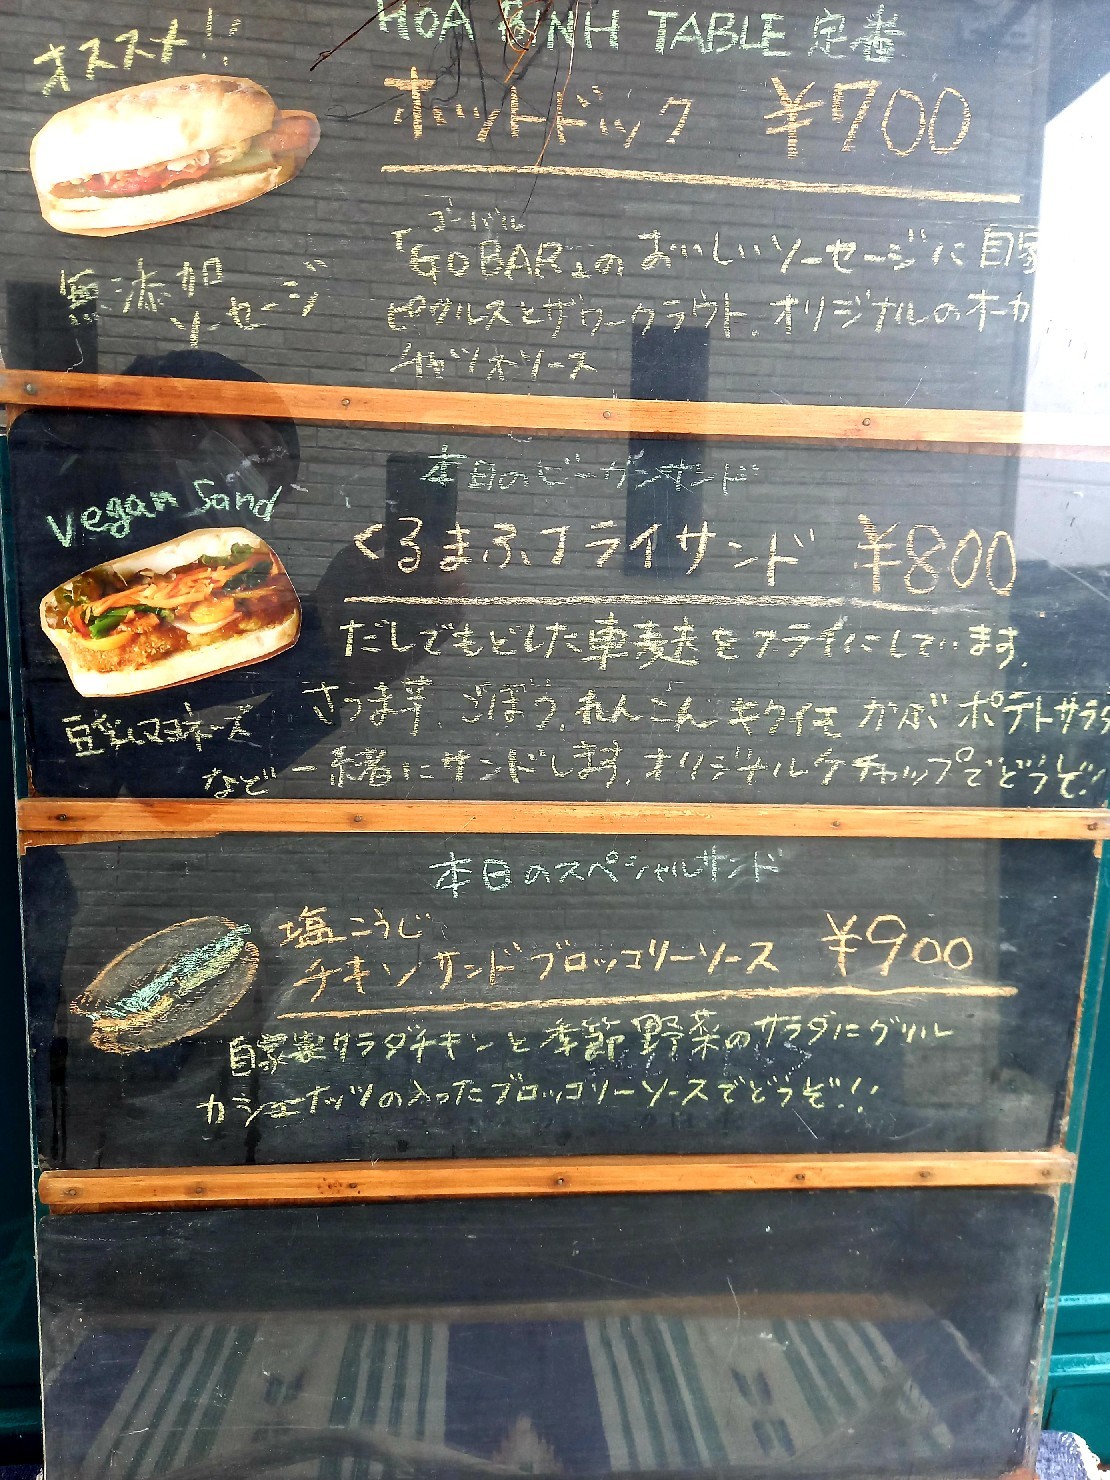 オススメ!!
HOA BINH TABLE 定番
ホットドック ¥700
ゴーバル
「GOBAR」の おいしいソーセージに 自家
ピクルスとザワークラウト、オリジナルのオーガ
無添加
ソーセージ
本日のビーガンサンド
Vegan Sand
くるまふフライサンド ¥800
だしでもどした車麦麩をフライにしています。
さつま芋、ごぼう、れんこん キクイモ かぶ ポテトサラダ
豆乳マヨネーズ
など 一緒にサンドします。オリジナルケチャップでどうぞ!
本日のスペシャルサンド
塩こうじ
チキンサンド ブロッコリーソース ¥900
自家製サラダチキンと季節野菜のサラダにグリル
カシューナッツの入ったブロッコリーソースでどうぞ!!